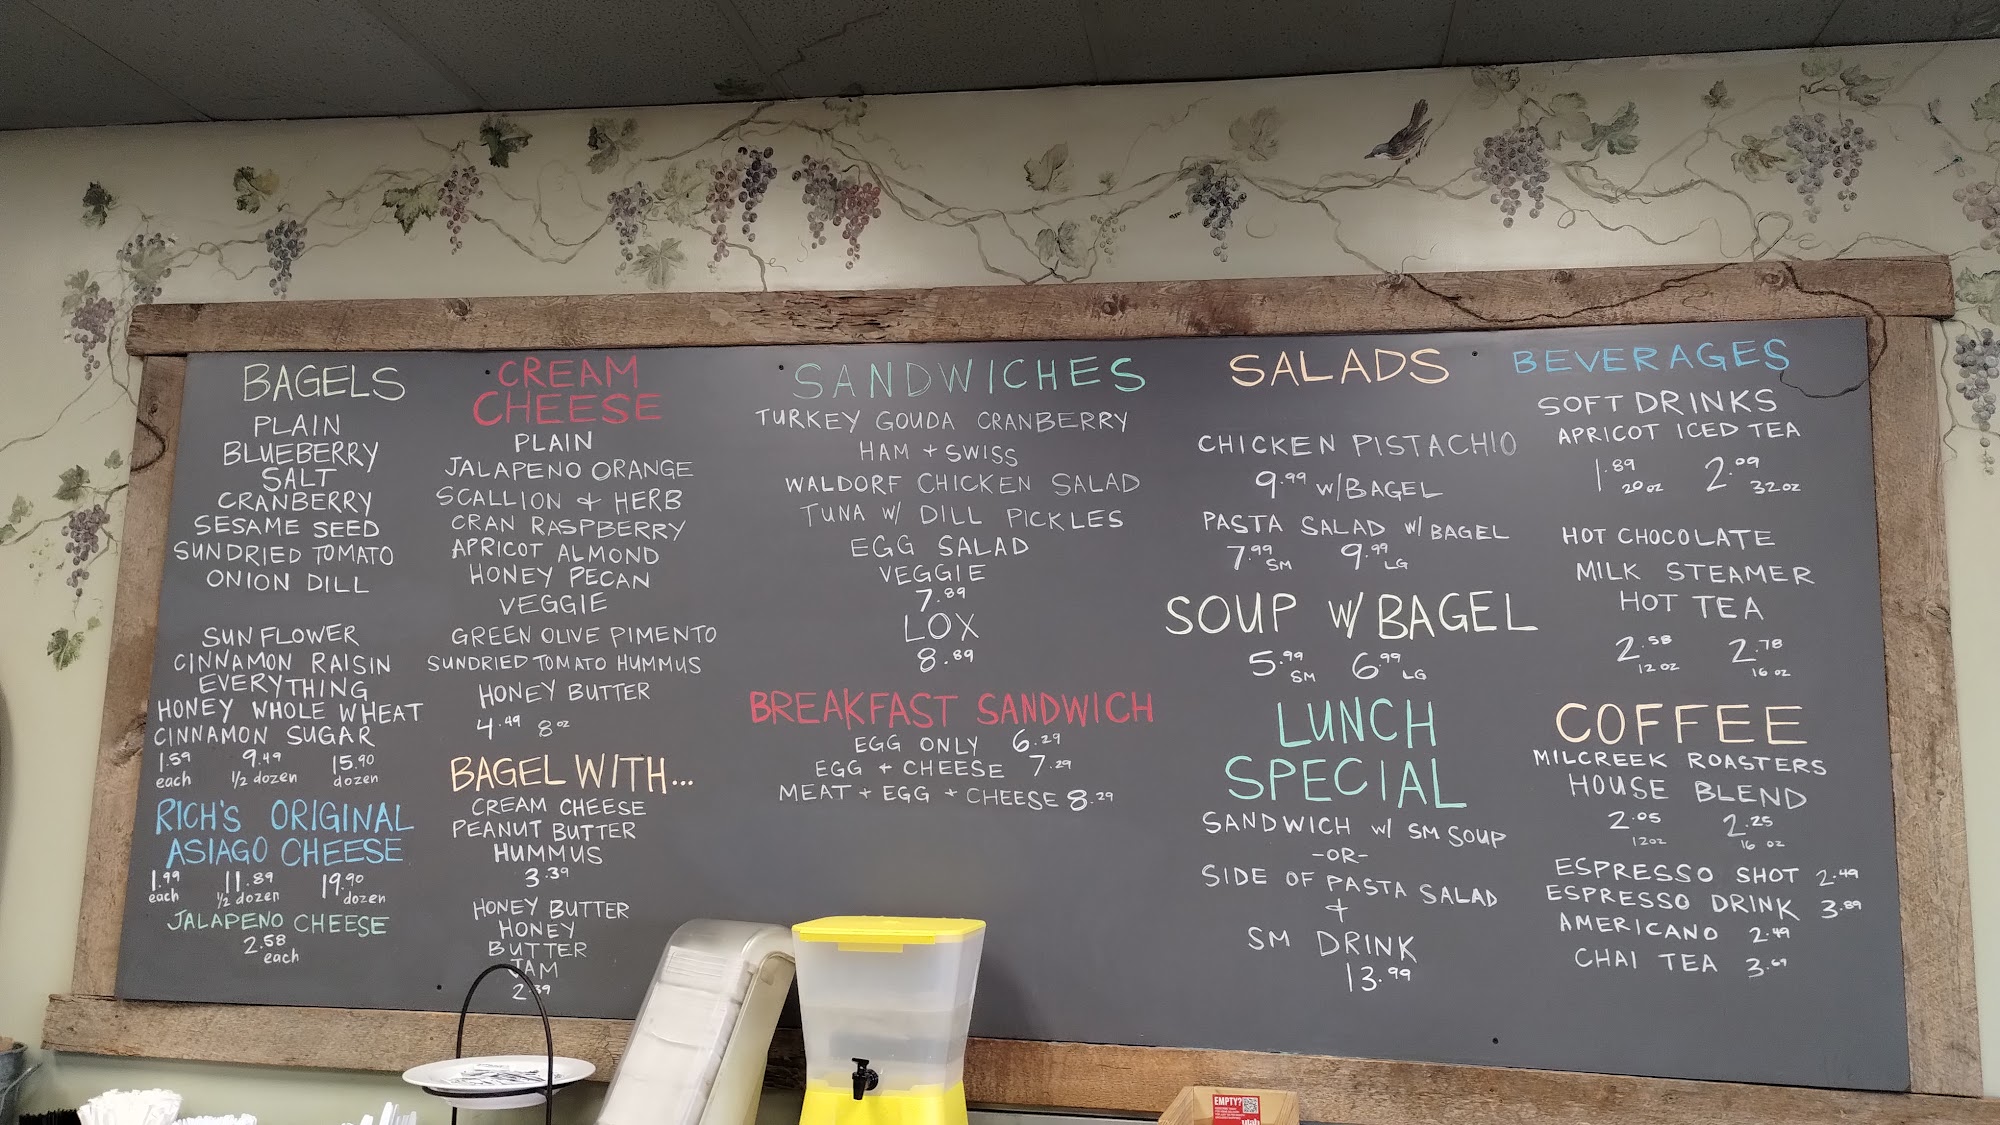 BAGELS
PLAIN
BLUEBERRY
SALT
CRANBERRY
SESAME SEED
SUNDRIED TOMATO
ONION DILL
SUNFLOWER
CINNAMON RAISIN
EVERYTHING
HONEY WHOLE WHEAT
CINNAMON SUGAR
1.59 9.49 15.90
each 1/2 dozen dozen
RICH'S ORIGINAL
ASIAGO CHEESE
1.99 11.89 19.90
each 1/2 dozen dozen
JALAPENO CHEESE
2.58
each
CREAM
CHEESE
PLAIN
JALAPENO ORANGE
SCALLION & HERB
CRAN RASPBERRY
APRICOT ALMOND
HONEY PECAN
VEGGIE
GREEN OLIVE PIMENTO
SUNDRIED TOMATO HUMMUS
HONEY BUTTER
4.49 8 oz
BAGEL WITH...
CREAM CHEESE
PEANUT BUTTER
HUMMUS
3.39
HONEY BUTTER
HONEY
BUTTER
JAM
2.39
SANDWICHES
TURKEY GOUDA CRANBERRY
HAM + SWISS
WALDORF CHICKEN SALAD
TUNA W/ DILL PICKLES
EGG SALAD
VEGGIE
7.89
LOX
8.89
BREAKFAST SANDWICH
EGG ONLY 6.29
EGG + CHEESE 7.29
MEAT + EGG + CHEESE 8.29
SALADS
CHICKEN PISTACHIO
9.99 W/BAGEL
PASTA SALAD W/ BAGEL
7.99 SM 9.99 LG
SOUP W/ BAGEL
5.99 SM 6.99 LG
LUNCH
SPECIAL
SANDWICH w/ SM SOUP
-OR-
SIDE OF PASTA SALAD
+
SM DRINK
13.99
BEVERAGES
SOFT DRINKS
APRICOT ICED TEA
1.89 20 oz 2.09 32 oz
HOT CHOCOLATE
MILK STEAMER
HOT TEA
2.58 12 oz 2.78 16 oz
COFFEE
MILCREEK ROASTERS
HOUSE BLEND
2.05 12 oz 2.25 16 oz
ESPRESSO SHOT 2.49
ESPRESSO DRINK 3.89
AMERICANO 2.49
CHAI TEA 3.69
EMPTY?